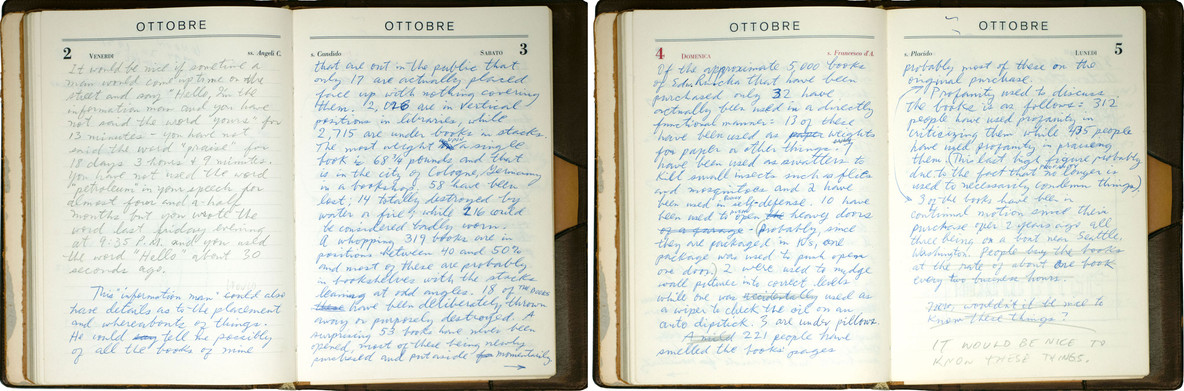 OTTOBRE
2 VENERDI ss. Angeli C.
It would be nice if sometime a
man would come up to me on the
street and say "Hello, I'm the
information man and you have
not said the word "yours" for
13 minutes - you have not
said the word "praise" for
18 days 3 hours + 9 minutes.
You have not used the word
"petroleum" in your speech for
almost four and a-half
months but you wrote the
word last Friday evening
at 9:35 P.M. and you used
the word "Hello" about 30
seconds ago.
This "information man" could also
have details as to the placement
and whereabouts of things.
He could say tell me possibly
of all the books of mine
OTTOBRE
s. Candido SABATO 3
that are out in the public that
only 17 are actually placed
face up with nothing covering
them. 2,026 are in vertical
positions in libraries, while
2,715 are under books in stacks.
The most weight on a single
book is 68 3/4 pounds and that
is in the city of Cologne, Germany
in a bookshop. 58 have been
lost; 14 totally destroyed by
water or fire; while 216 could
be considered badly worn.
A whopping 319 books are in
positions between 40 and 50%
and most of these are probably
in bookshelves with the stacks
leaning at odd angles. 18 of THE BOOKS
have been deliberately thrown
away or purposely destroyed. A
surprising 53 books have never been
opened, most of these being newly
purchased and put aside for momentarily
OTTOBRE
4 DOMENICA s. Francesco d'A.
Of the approximate 5,000 books
of Ed Ruscha that have been
purchased only 32 have
actually been used in a directly
functional manner: 13 of these
have been used as paper weights
for paper or other things. 7
have been used as swatters to
kill small insects such as flies
and mosquitoes and 2 have
been used in self-defense. 10 have
been used to open heavy doors
of a garage - (Probably, since
they are packaged in 10's, one
package was used to push open
one door) 2 were used to nudge
wall pictures into correct levels
while one was accidentally used as
a wiper to check the oil on an
auto dipstick. 3 are under pillows.
221 people have
smelled the books pages
OTTOBRE
s. Placido LUNEDI 5
probably most of these on the
original purchase.
Profanity used to discuss
the books is as follows: 312
people have used profanity in
criticizing them while 435 people
have used profanity in praising
them (This last high figure probably
due to the fact that no longer is
used to necessarily condemn things)
3 of the books have been in
continual motion since their
purchase over 2 years ago all
three being on a boat near Seattle,
Washington. People buy the books
at the rate of about one book
every two business hours.
Now, wouldn't it be nice to
know these things?
IT WOULD BE NICE TO
KNOW THESE THINGS.